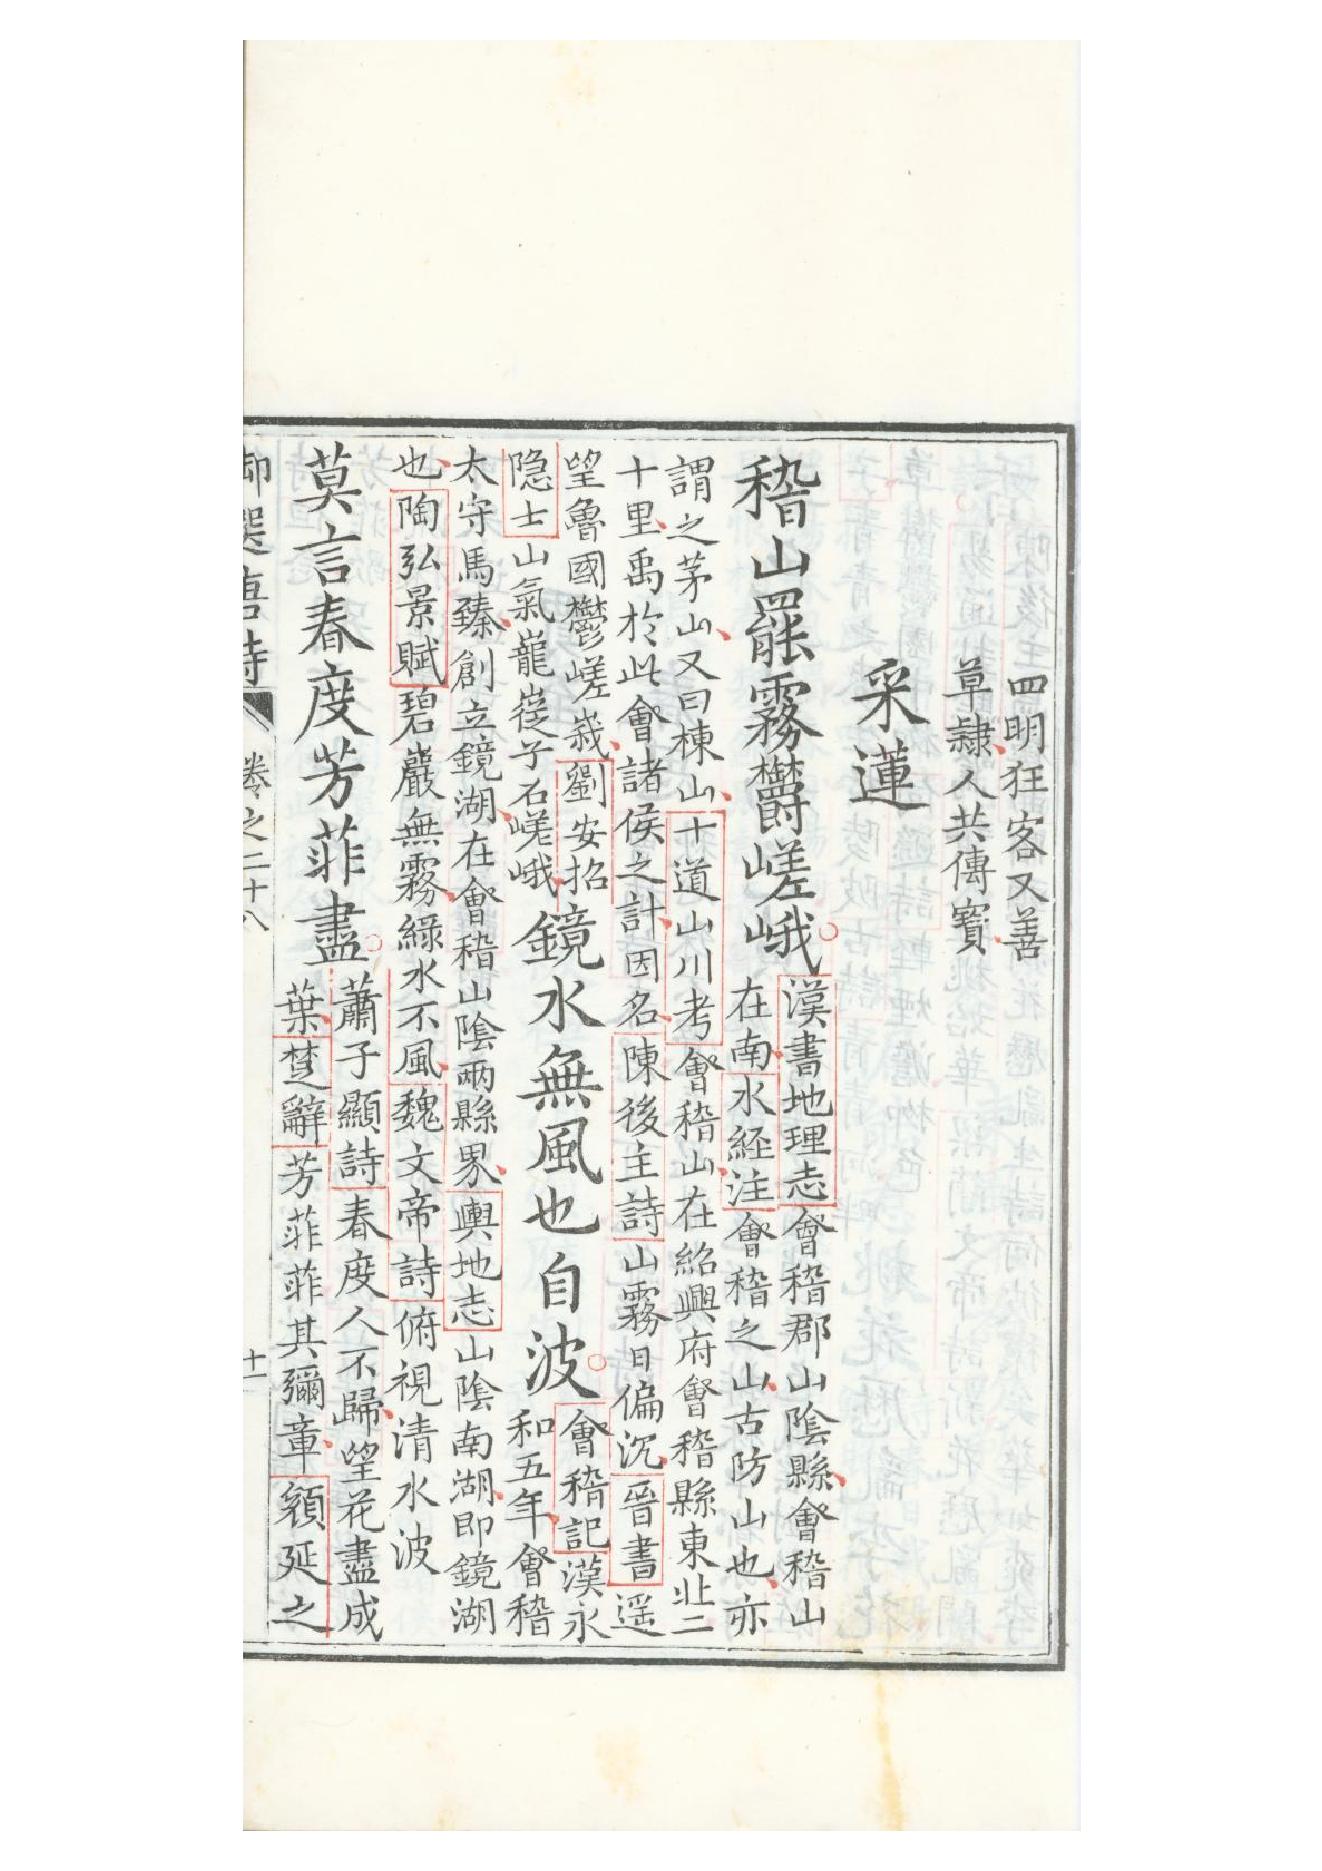 四明狂客又善
草隷人共傳寶
采蓮
稽山罷霧鬱嵯峨
漢書地理志會稽郡山陰縣會稽山
在南水經注會稽之山古防山也亦
謂之茅山又曰棟山十道山川考會稽山在紹興府會稽縣東北二
十里禹於此會諸侯之計因名陳後主詩山霧日偏沉晉書遥
望魯國鬱嵯峩劉安招
隐士山氣巃嵸兮石嵯峨
鏡水無風也自波
會稽記漢永
和五年會稽
太守馬臻創立鏡湖在會稽山陰兩縣界輿地志山陰南湖即鏡湖
也陶弘景賦碧巖無霧綠水不風魏文帝詩俯視清水波
莫言春度芳菲盡
蕭子顯詩春度人不歸望花盡成
葉楚辭芳菲菲其彌章顔延之
御選唐詩 卷之二十八 十一